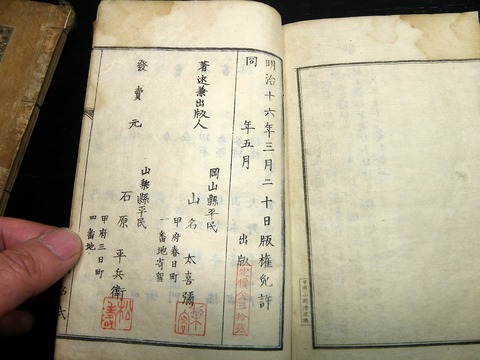 明治十六年三月二十日版權免許
同　年五月　出版
著述兼出版人
岡山縣平民
山名太喜彌
甲府春日町
一番地寄留
發賣元
山梨縣平民
石原平兵衛
甲府三日町
四番地